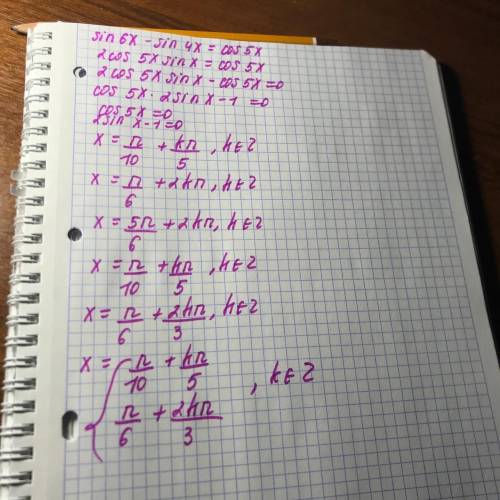 sin 6x - sin 4x = cos 5x
2cos 5x sin x = cos 5x
2 cos 5x sin x - cos 5x = 0
cos 5x · 2sin x - 1 = 0
cos 5x = 0
2sin x - 1 = 0
x = π/10 + kπ/5, k∈Z
x = π/6 + 2kπ, k∈Z
x = 5π/6 + 2kπ, k∈Z
x = π/10 + kπ/5, k∈Z
x = π/6 + 2kπ/3, k∈Z
x = { π/10 + kπ/5
π/6 + 2kπ/3 , k∈Z